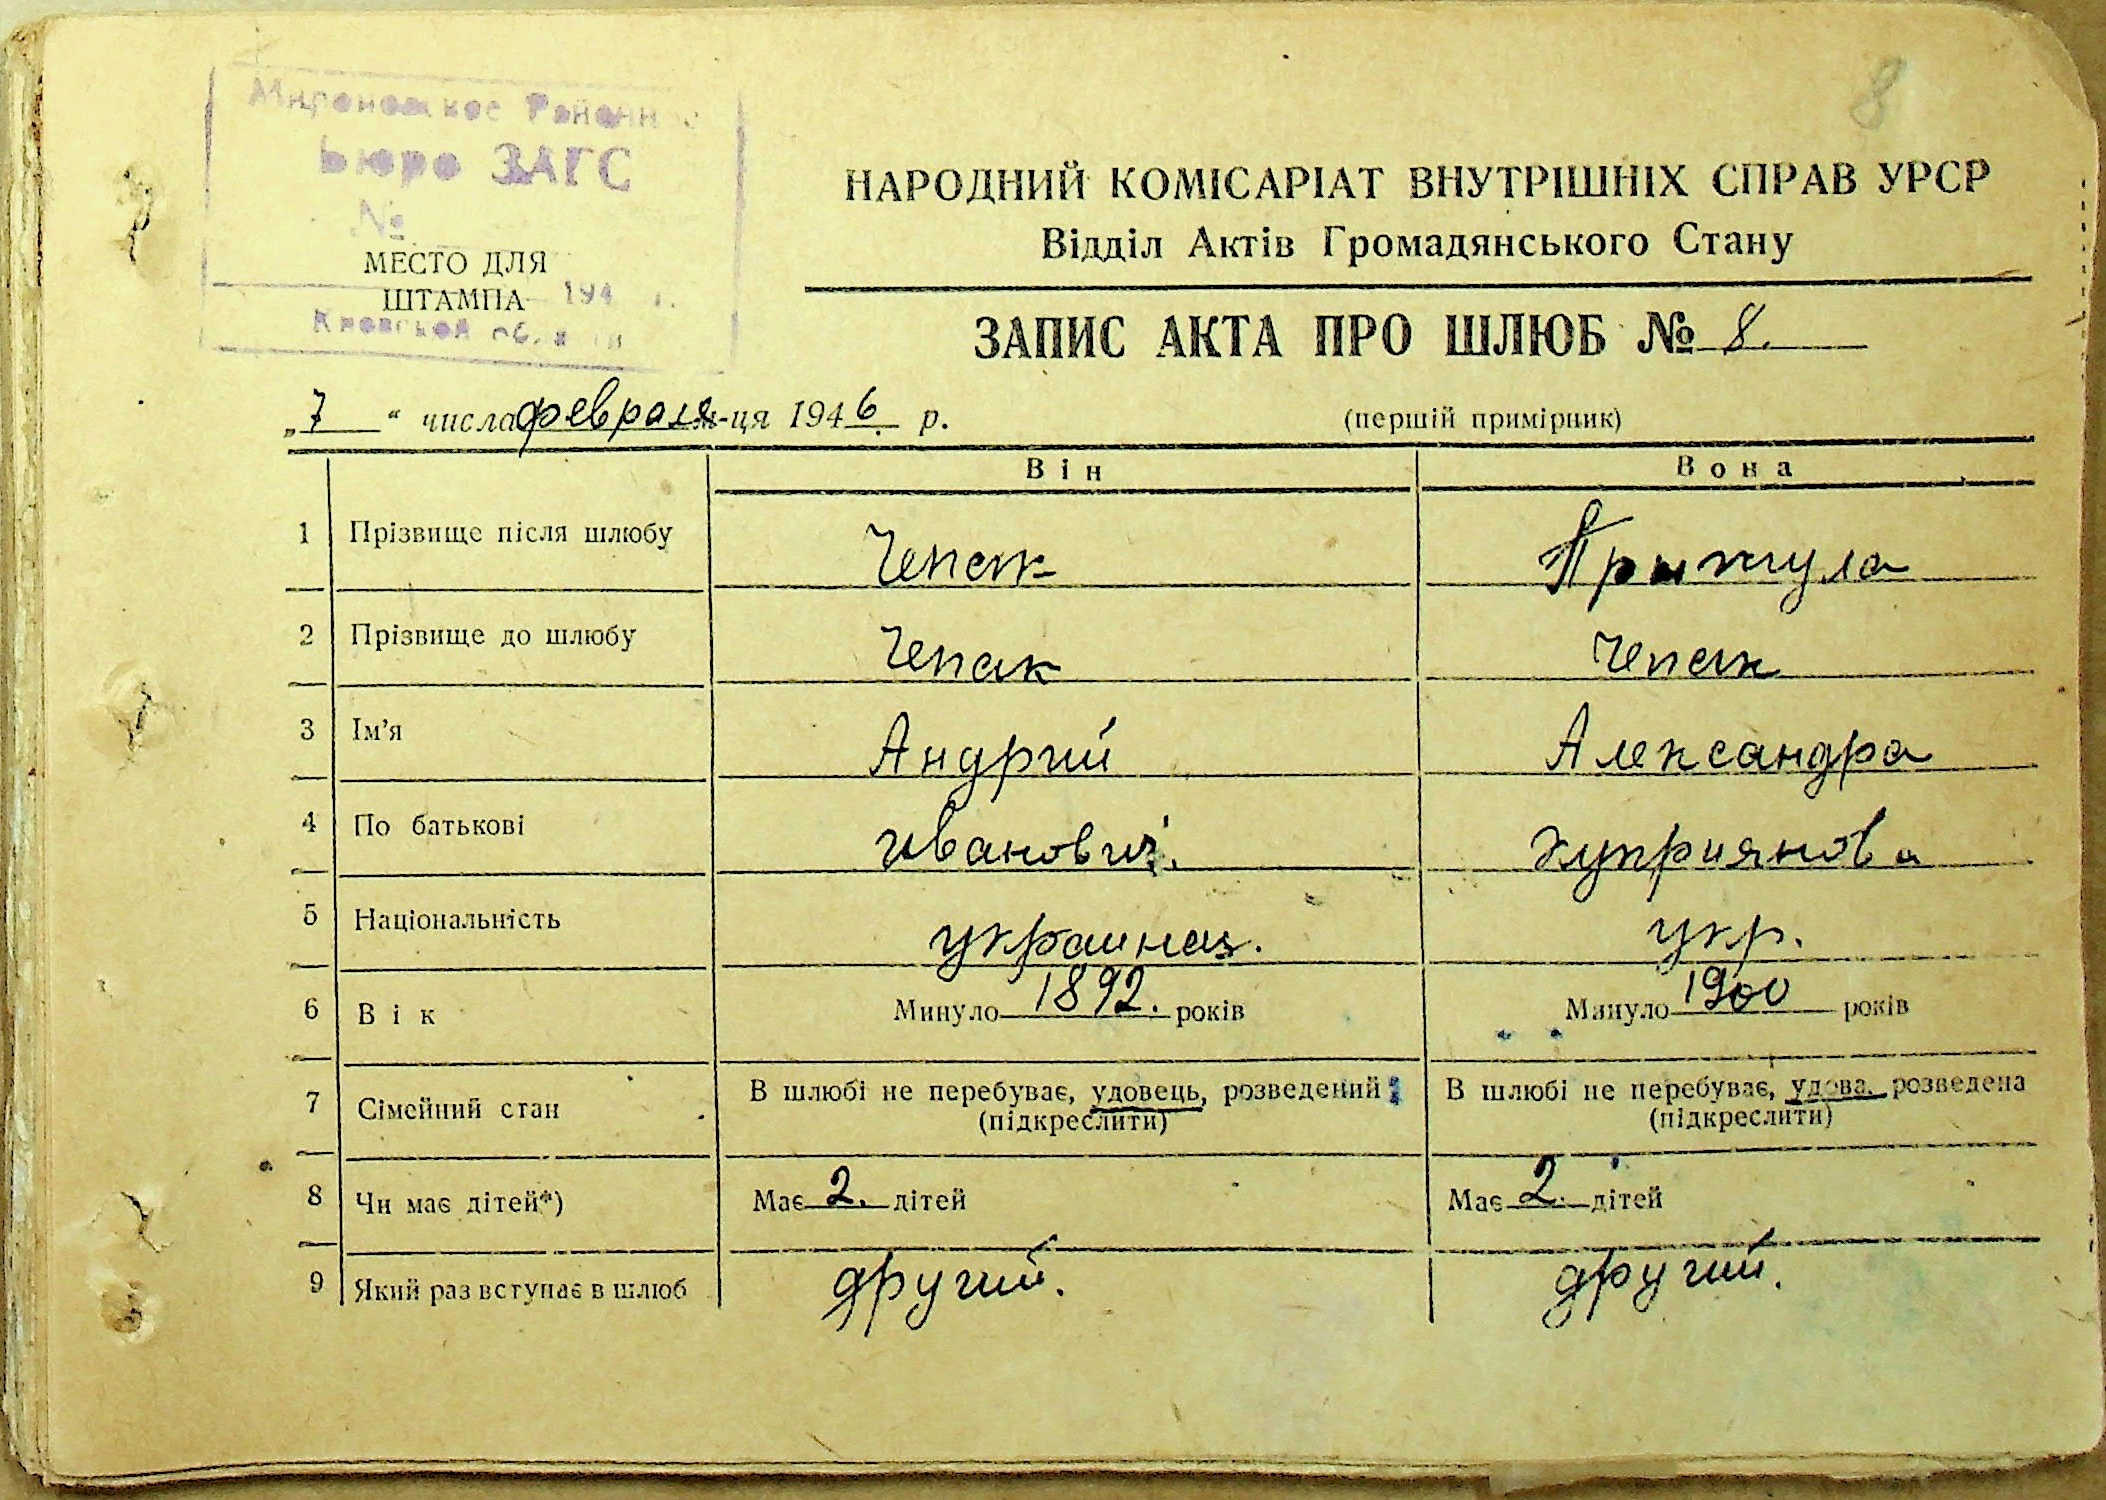 8
Мироновское Районное
Бюро ЗАГС
№
МЕСТО ДЛЯ
ШТАМПА 194 г.
Киевской
НАРОДНИЙ КОМІСАРІАТ ВНУТРІШНІХ СПРАВ УРСР
Відділ Актів Громадянського Стану
ЗАПИС АКТА ПРО ШЛЮБ № 8.
„7“ числа февраля м-ця 1946 р.
(першій примірник)
Він Вона
1 Прізвище після шлюбу Чепак Прыжула
2 Прізвище до шлюбу Чепак Чепак
3 Ім'я Андрий Александра
4 По батькові Иванович. Куприянова
5 Національність украинец. укр.
6 Вік Минуло 1892. років Минуло 1900 років
7 Сімейний стан В шлюбі не перебуває, удовець, розведений В шлюбі не перебуває, удова. розведена
(підкреслити) (підкреслити)
8 Чи має дітей*) Має 2. дітей Має 2. дітей
9 Який раз вступає в шлюб другий. другий.